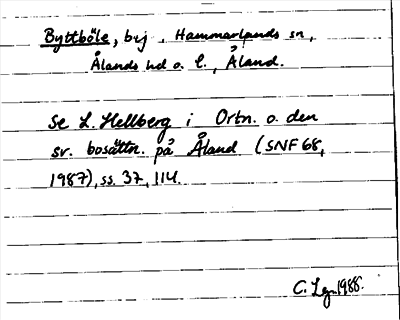 Byttböle, byj, Hammarlands sn,
Ålands hd o. l., Åland.
Se L. Hellberg i Ortn. o. den
sv. bosättn. på Åland (SNF 68,
1987), ss. 37, 114.
C. Lgn 1988.